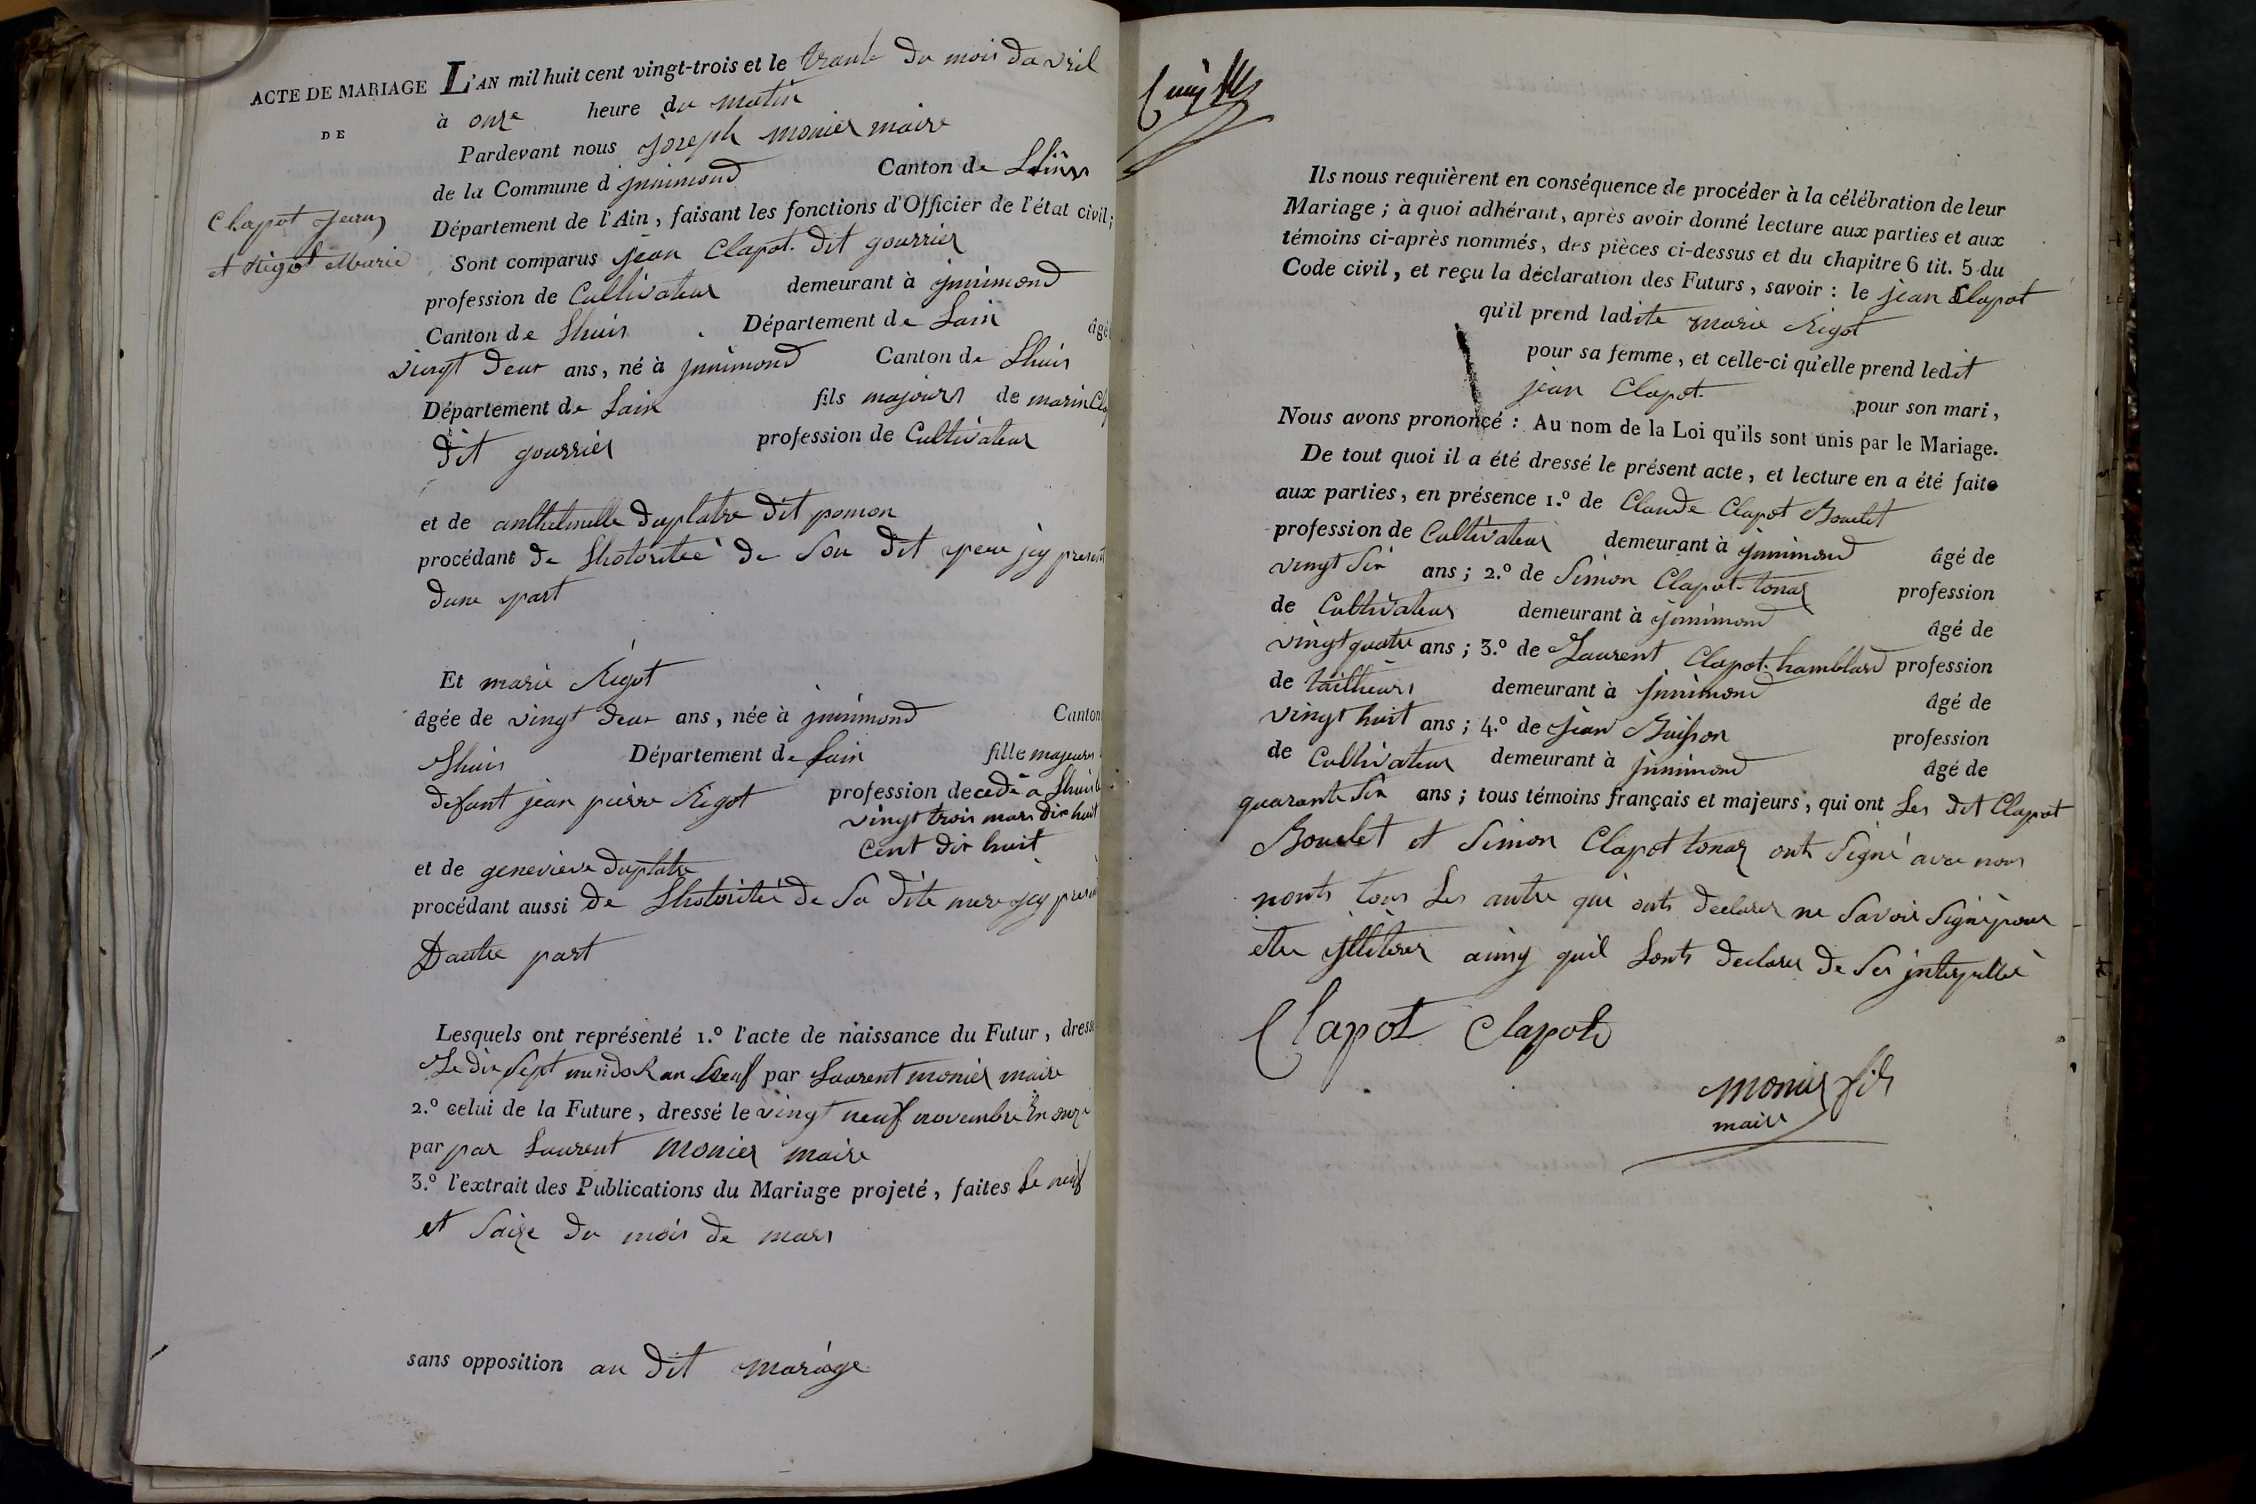 ACTE DE MARIAGE
DE
Clapot Jean
et Rigot Marie
L'AN mil huit cent vingt-trois et le trante du mois davril
à onze heure du matin
Pardevant nous joseph monier maire
de la Commune d jnnimond Canton de Lhuis
Département de l'Ain, faisant les fonctions d'Officier de l'état civil;
Sont comparus jean Clapot dit gourrier
profession de Cultivateur demeurant à jnnimond
Canton de Lhuis Département de Lain âgé
vingt deux ans, né à jnnimond Canton de Lhuis
Département de Lain fils majours de marin Cla
dit gourrier profession de Cultivateur
et de anthelmelle duplatre dit pomon
procédant de Lhotoritéé de Son dit pere jcy present
dune part
Et marie Rigot
âgée de vingt deux ans, née à jnnimond Canton
Lhuis Département de Lain fille majeure
defunt jean pierre Rigot profession decedé a Lhuis le
vingt trois mars dix huit
Cent dix huit
et de genevieve duplatre
procédant aussi de Lhotoritéé de Sa dite mere jcy present
Dautre part
Lesquels ont représenté 1.º l'acte de naissance du Futur, dressé
Le dix Sept an neuf par Laurent monier maire
2.º celui de la Future, dressé le vingt neuf novembre En onze
par par Laurent monier maire
3.º l'extrait des Publications du Mariage projeté, faites Le neuf
et Saize du mois de mars
sans opposition au dit mariage
Ils nous requièrent en conséquence de procéder à la célébration de leur
Mariage; à quoi adhérant, après avoir donné lecture aux parties et aux
témoins ci-après nommés, des pièces ci-dessus et du chapitre 6 tit. 5 du
Code civil, et reçu la déclaration des Futurs, savoir: le jean Clapot
qu'il prend ladite marie Rigot
pour sa femme, et celle-ci qu'elle prend ledit
jean Clapot pour son mari,
Nous avons prononcé: Au nom de la Loi qu'ils sont unis par le Mariage.
De tout quoi il a été dressé le présent acte, et lecture en a été faite
aux parties, en présence 1.º de Claude Clapot Bouclet
profession de Cultivateur demeurant à jnnimond âgé de
vingt Six ans; 2.º de Simon Clapot tonaz profession
de Cultivateur demeurant à jnnimond âgé de
vingt quatre ans; 3.º de Laurent Clapot hamblard profession
de tailheurs demeurant à jnnimond âgé de
vingt huit ans; 4.º de jean Buisson profession
de Cultivateur demeurant à jnnimond âgé de
quarante Six ans; tous témoins français et majeurs, qui ont Les dit Clapot
Bouclet et Simon Clapot tonaz onts Signé avec nous
nonts tous Les autre qui onts declarer ne Savoir Signé pour
etre jlliterer aincy quil Lonts declarer de Ses jnterpellée
Clapot Clapot
monier fils
maire